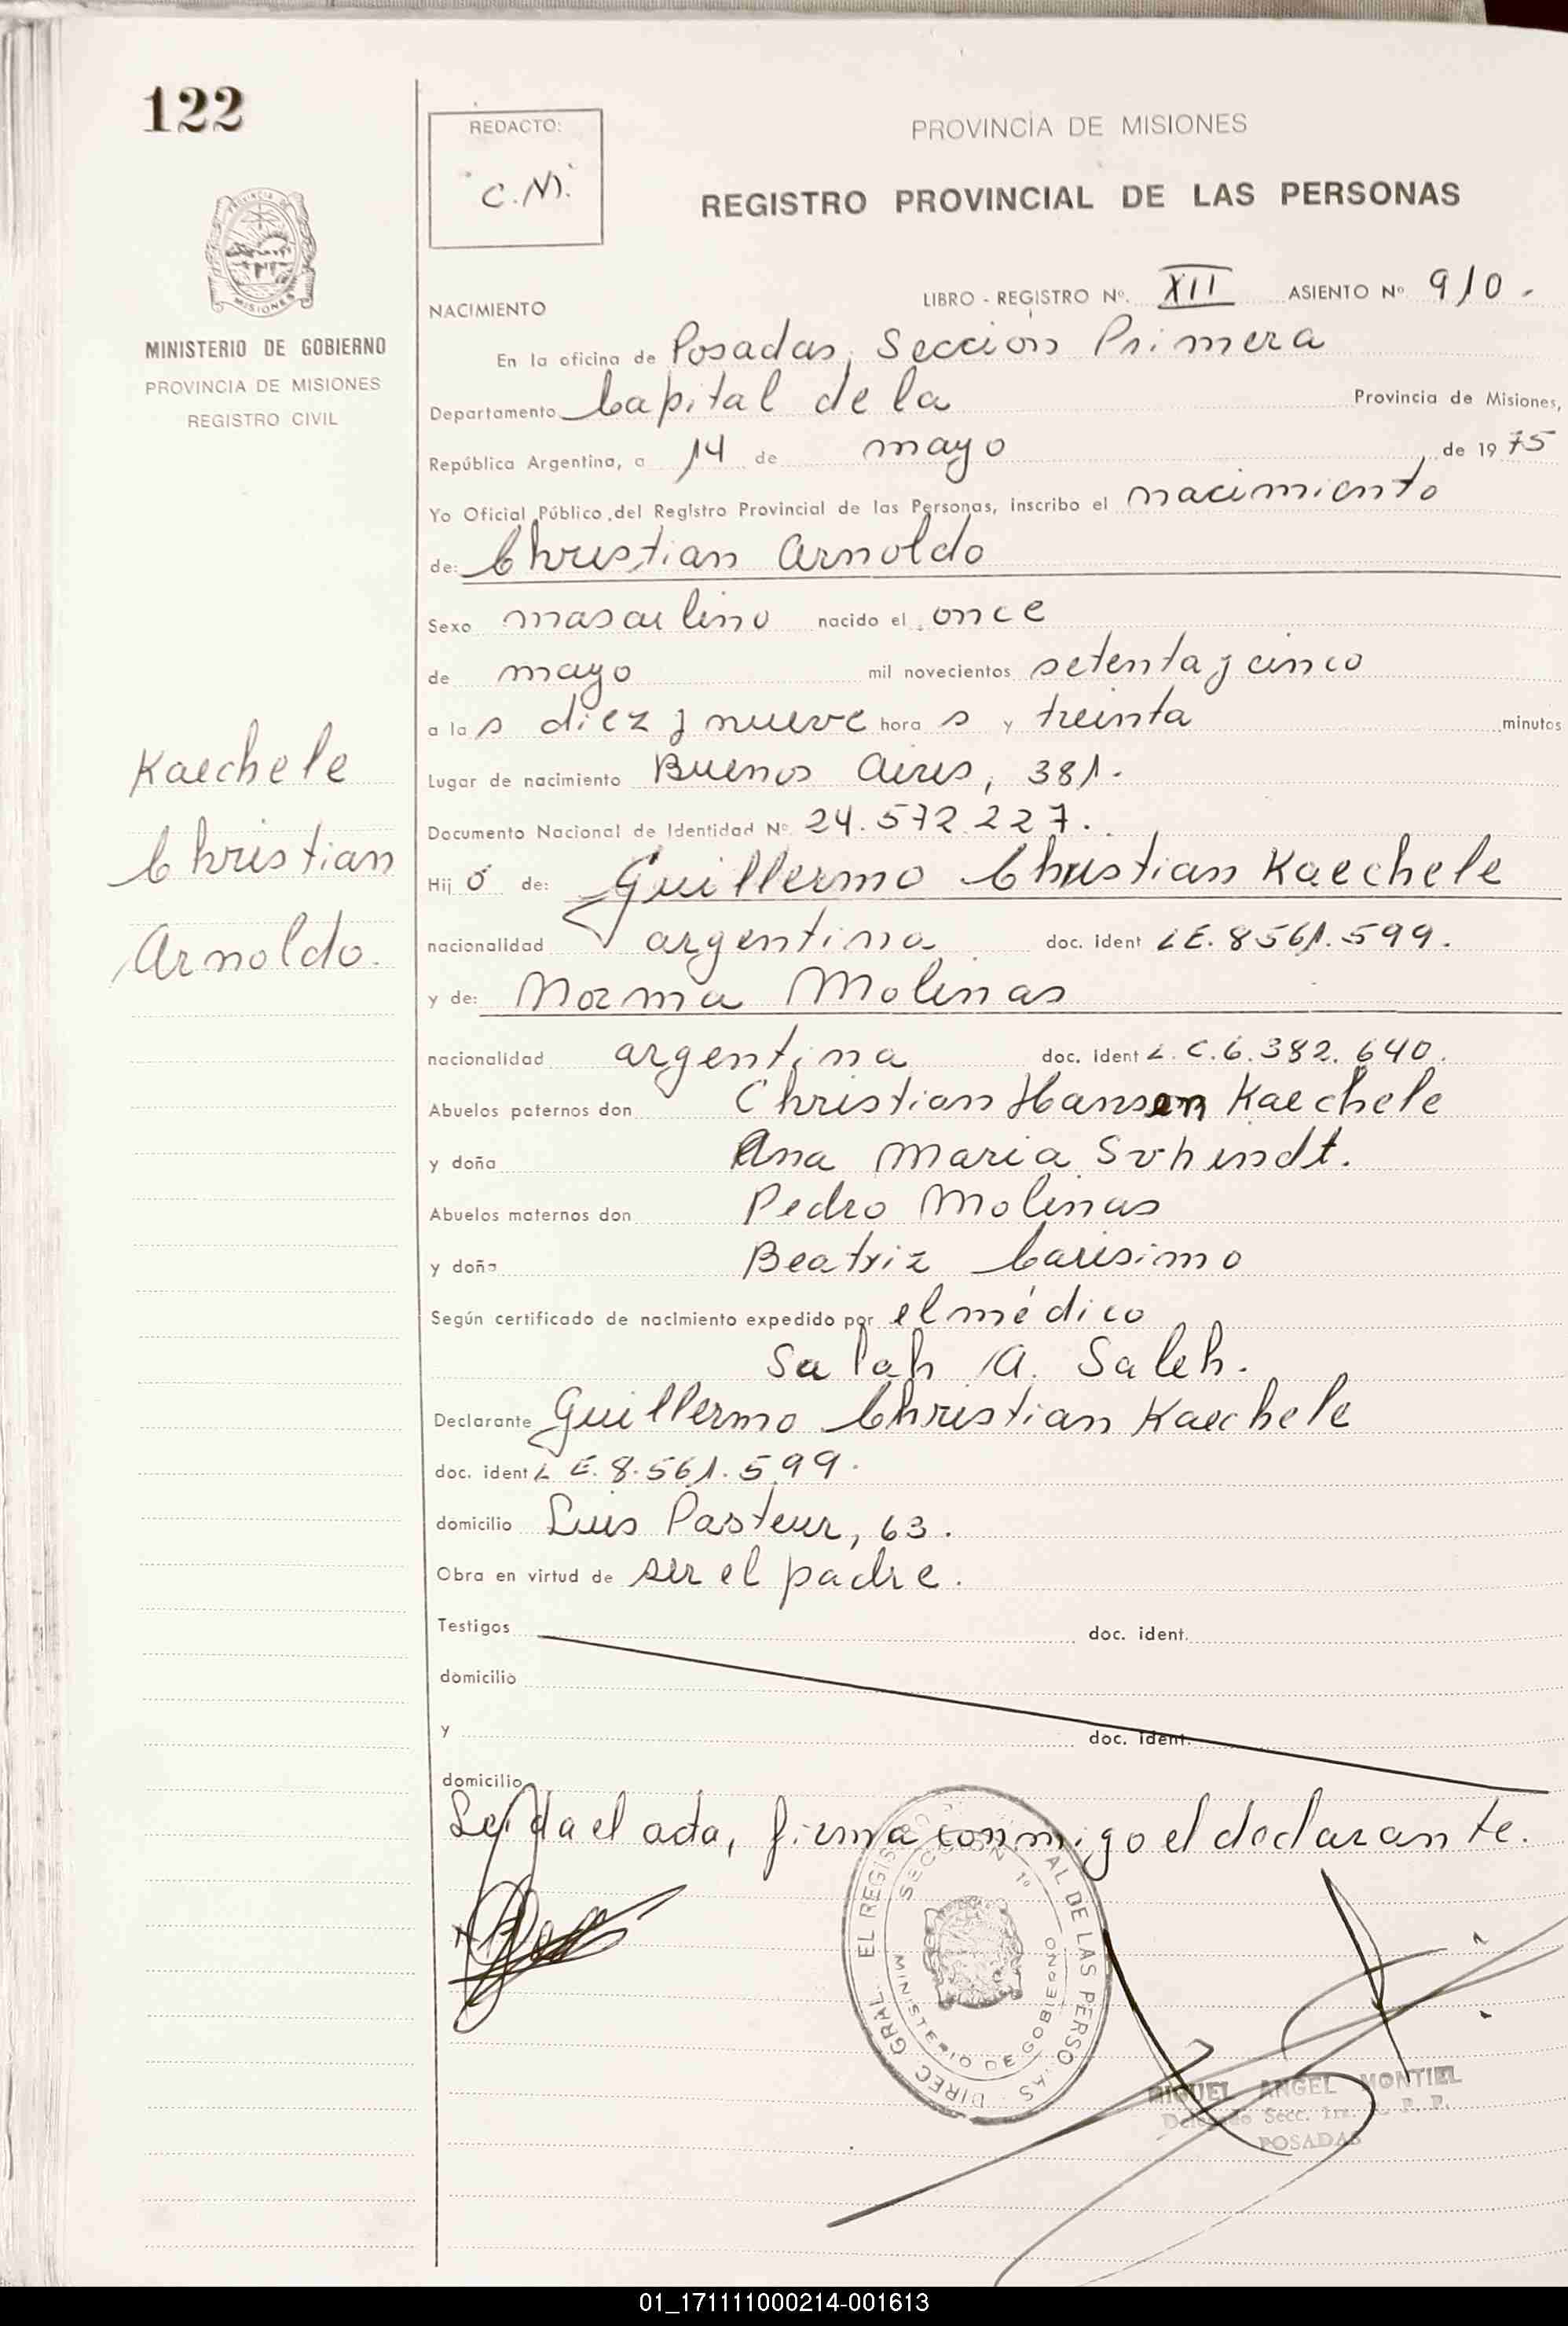 122
REDACTO:
C.M.
PROVINCIA DE MISIONES
REGISTRO PROVINCIAL DE LAS PERSONAS
MISIONES
MINISTERIO DE GOBIERNO
PROVINCIA DE MISIONES
REGISTRO CIVIL
NACIMIENTO
LIBRO - REGISTRO Nº. XII ASIENTO Nº 910.
En la oficina de Posadas, Sección Primera
Departamento Capital de la Provincia de Misiones,
República Argentina, a 14 de mayo de 1975
Yo Oficial Público del Registro Provincial de las Personas, inscribo el nacimiento
de: Christian Arnoldo
Sexo masculino nacido el once
de mayo mil novecientos setenta y cinco
a las diez y nueve horas y treinta minutos
Lugar de nacimiento Buenos Aires, 381.
Documento Nacional de Identidad Nº 24.572.227.
Kaechele
Christian
Arnoldo.
Hijo de: Guillermo Christian Kaechele
nacionalidad argentina doc. ident LE. 8561.599.
y de: Norma Molinas
nacionalidad argentina doc. ident L.C. 6.382.640.
Abuelos paternos don Christian Hansen Kaechele
y doña Ana Maria Svhindt.
Abuelos maternos don Pedro Molinas
y doña Beatriz Carisimo
Según certificado de nacimiento expedido por el médico
Salah A. Saleh.
Declarante Guillermo Christian Kaechele
doc. ident L E. 8.561.599.
domicilio Luis Pasteur, 63.
Obra en virtud de ser el padre.
Testigos doc. ident.
domicilio
y doc. ident.
domicilio
Leída el acta, firma conmigo el declarante.
DIREC GRAL. EL REGIS AL DE LAS PERSO AS
SECCION 1º
MINISTERIO DE GOBIERNO
MIGUEL ANGEL MONTIEL
Delegado Secc. 1ra. R. P. P.
POSADAS
01_171111000214-001613